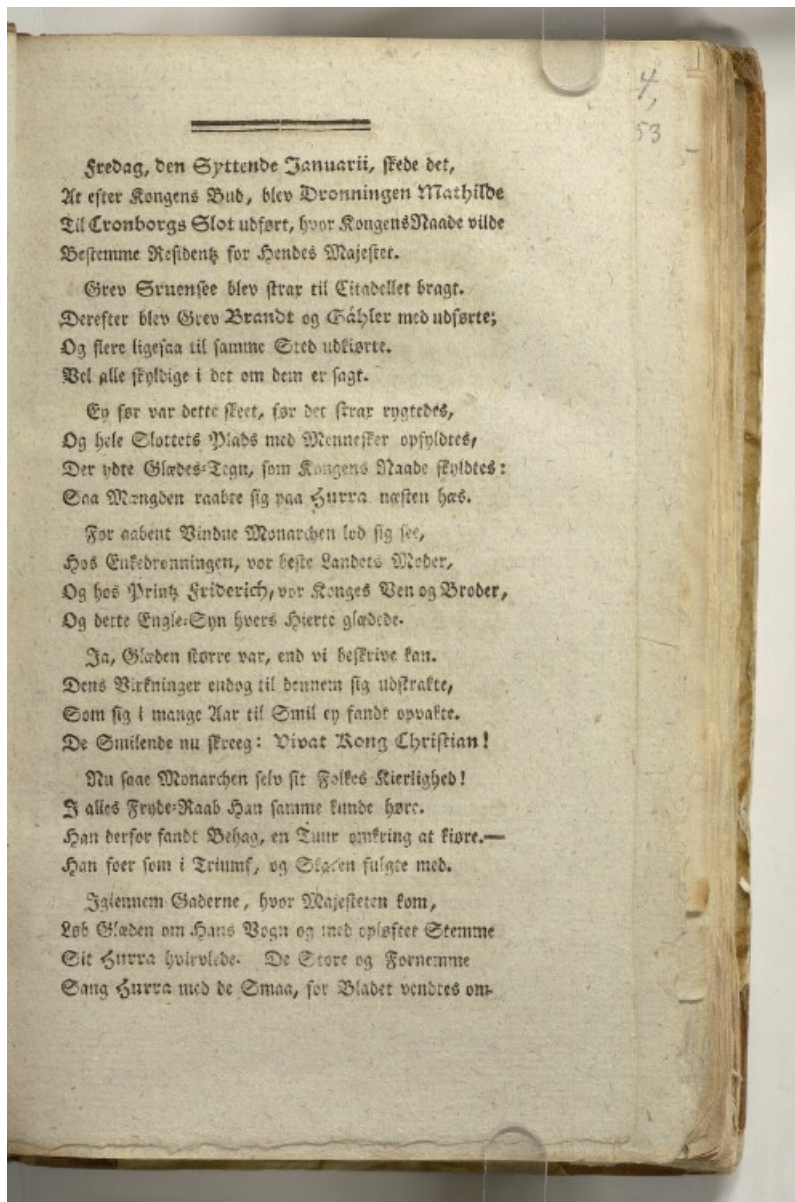 4,
53
Fredag, den Syttende Januarii, skede det,
At efter Kongens Bud, blev Dronningen Mathilde
Til Cronborgs Slot udført, hvor Kongens Naade vilde
Bestemme Residentz for Hendes Majestet.
Grev Struensee blev strax til Citadellet bragt.
Derefter blev Grev Brandt og Gåhler med udførte;
Og flere ligesaa til samme Sted udkiørte.
Vel alle skyldige i det om dem er sagt.
Ey før var dette skeet, før det strax rygtedes,
Og hele Slottets Plads med Mennesker opfyldtes,
Der ydte Glædes-Tegn, som Kongens Naade skyldtes:
Saa Mængden raabte sig paa Hurra næsten hæs.
For aabent Vindue Monarchen lod sig see,
Hos Enkedronningen, vor beste Landets Moder,
Og hos Printz Friderich, vor Konges Ven og Broder,
Og dette Engle-Syn hvers Hierte glædede.
Ja, Glæden større var, end vi beskrive kan.
Dens Virkninger endog til dennem sig udstrakte,
Som sig i mange Aar til Smil ey fandt opvakte.
De Smilende nu skreeg: Vivat Kong Christian!
Nu saae Monarchen selv sit Folkes Kierlighed!
I alles Fryde-Raab Han samme kunde høre.
Han derfor fandt Behag, en Tuur omkring at kiøre.—
Han foer som i Triumf, og Skaren fulgte med.
Igiennem Gaderne, hvor Majesteten kom,
Løb Glæden om Hans Vogn og med opløftet Stemme
Sit Hurra hvirvlede. De Store og Fornemme
Sang Hurra med de Smaa, for Bladet vendtes om.